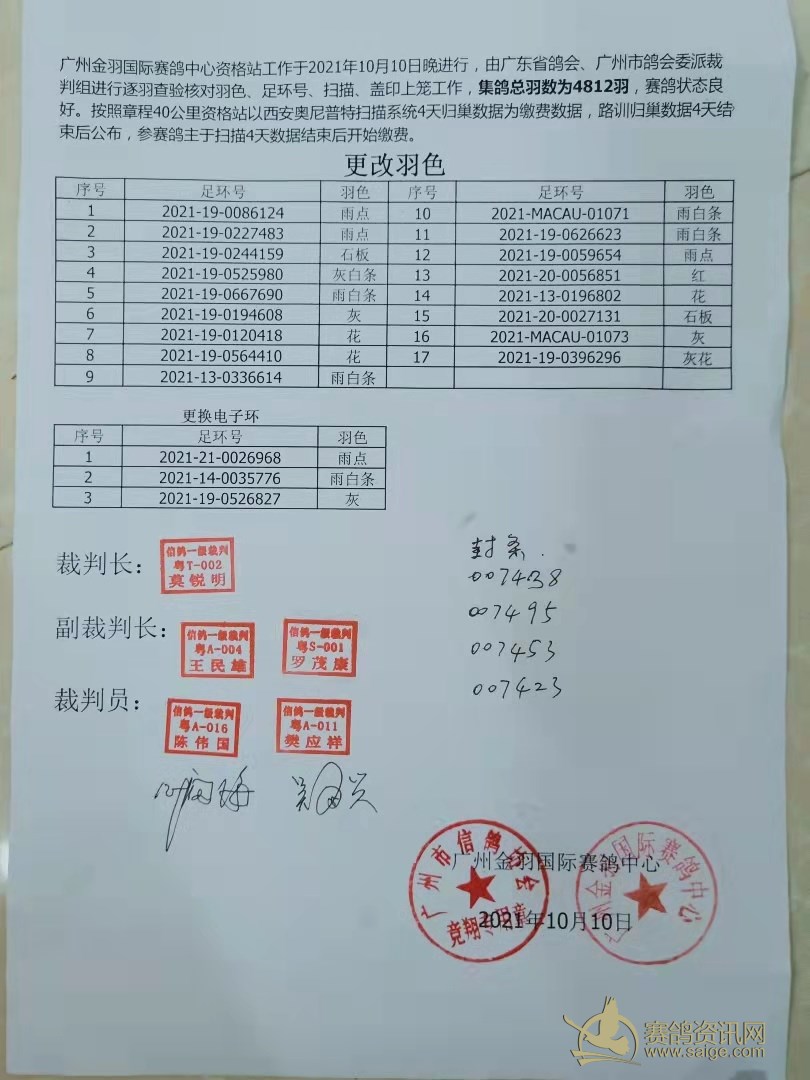 广州金羽国际赛鸽中心资格站工作于2021年10月10日晚进行，由广东省鸽会、广州市鸽会委派裁
判组进行逐羽查验核对羽色、足环号、扫描、盖印上笼工作，集鸽总羽数为4812羽，赛鸽状态良
好。按照章程40公里资格站以西安奥尼普特扫描系统4天归巢数据为缴费数据，路训归巢数据4天结
束后公布，参赛鸽主于扫描4天数据结束后开始缴费。
更改羽色
序号 足环号 羽色 序号 足环号 羽色
1 2021-19-0086124 雨点 10 2021-MACAU-01071 雨白条
2 2021-19-0227483 雨点 11 2021-19-0626623 雨白条
3 2021-19-0244159 石板 12 2021-19-0059654 雨点
4 2021-19-0525980 灰白条 13 2021-20-0056851 红
5 2021-19-0667690 雨白条 14 2021-13-0196802 花
6 2021-19-0194608 灰 15 2021-20-0027131 石板
7 2021-19-0120418 花 16 2021-MACAU-01073 灰
8 2021-19-0564410 花 17 2021-19-0396296 灰花
9 2021-13-0336614 雨白条
更换电子环
序号 足环号 羽色
1 2021-21-0026968 雨点
2 2021-14-0035776 雨白条
3 2021-19-0526827 灰
封条.
007438
007495
007453
007423
裁判长：
信鸽一级裁判
粤T-002
莫锐明
副裁判长：
信鸽一级裁判
粤A-004
王民雄
信鸽一级裁判
粤S-001
罗茂康
裁判员：
信鸽一级裁判
粤A-016
陈伟国
信鸽一级裁判
粤A-011
樊应祥
广州市信鸽协会
竞翔专用章
广州金羽国际赛鸽中心
广州金羽国际赛鸽中心
2021年10月10日
赛鸽资讯网
www.saige.com